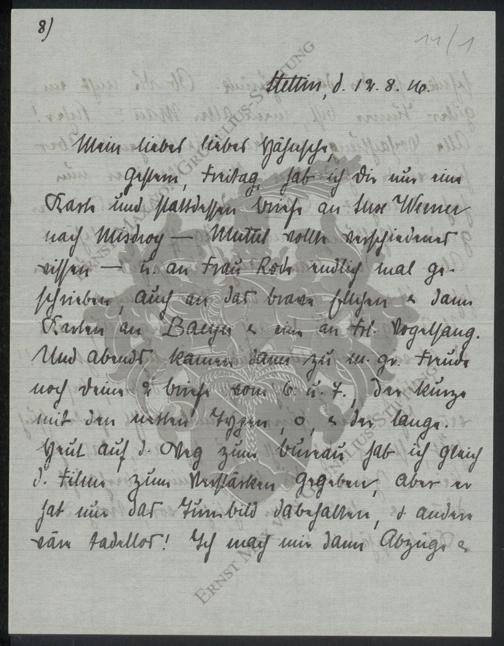 8)
11/1
Stettin, d. 12. 8. 16.
Mein liebes liebes Hähnsche,
Gestern, Freitag, hab ich Dir nur eine
Karte und stattdessen Briefe an Lux Werner
nach Misdroy — Muttel wollte verschiedenes
wissen — u. an Frau Rode endlich mal ge-
schrieben, auch an das brave & dann
Karten an Baeyer & eine an Frl. Vogelsang.
Und abends kamen dann zu m. gr. Freude
noch Deine 2 Briefe vom 6. u. 7., der kurze
mit den netten Typen, o, & der lange.
Heut auf d. Weg zum Bureau hab ich gleich
d. Filme zum Verstärken gegeben, aber er
hat nur das Turmbild dabehalten, d andere
wäre tadellos! Ich mach mir dann Abzüge &
ERNST